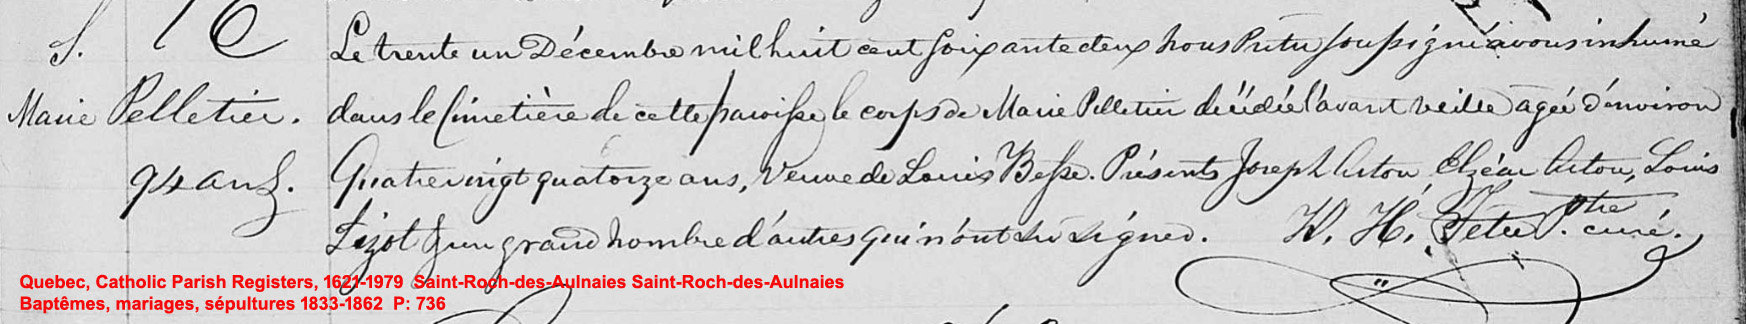 S.
Marie Pelletier.
94 ans.
Le trente un Décembre mil huit cent soixante deux nous Prêtre soussigné avons inhumé
dans le Cimetière de cette paroisse le corps de Marie Pelletier décédée l'avant veille agée d'environ
Quatre vingt quatorze ans, Veuve de Louis Besse. Présents Joseph Auton, Elzéar Auton, Louis
Lizot & un grand nombre d'autres qui n'ont su signer. Ptre curé.
Quebec, Catholic Parish Registers, 1621-1979 Saint-Roch-des-Aulnaies Saint-Roch-des-Aulnaies
Baptêmes, mariages, sépultures 1833-1862 P: 736